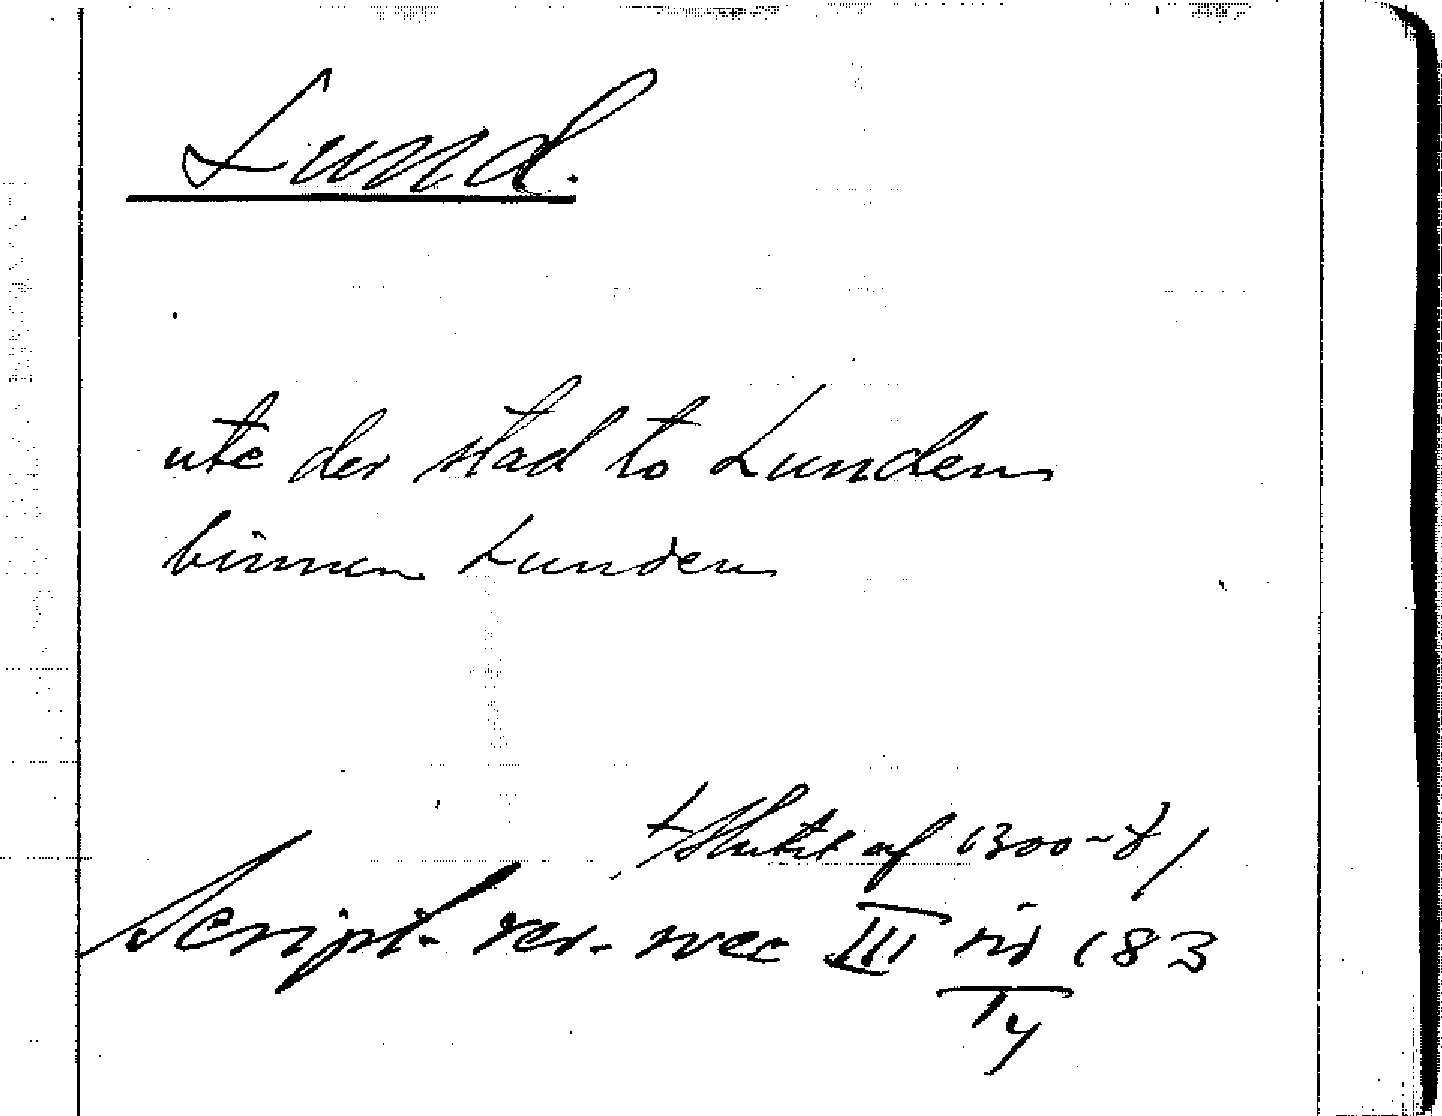 Lund.
ute der stad to Lunden
binnen Lunden
Slutet af 1300-t
Script. rer. svec III sid 183
Ty